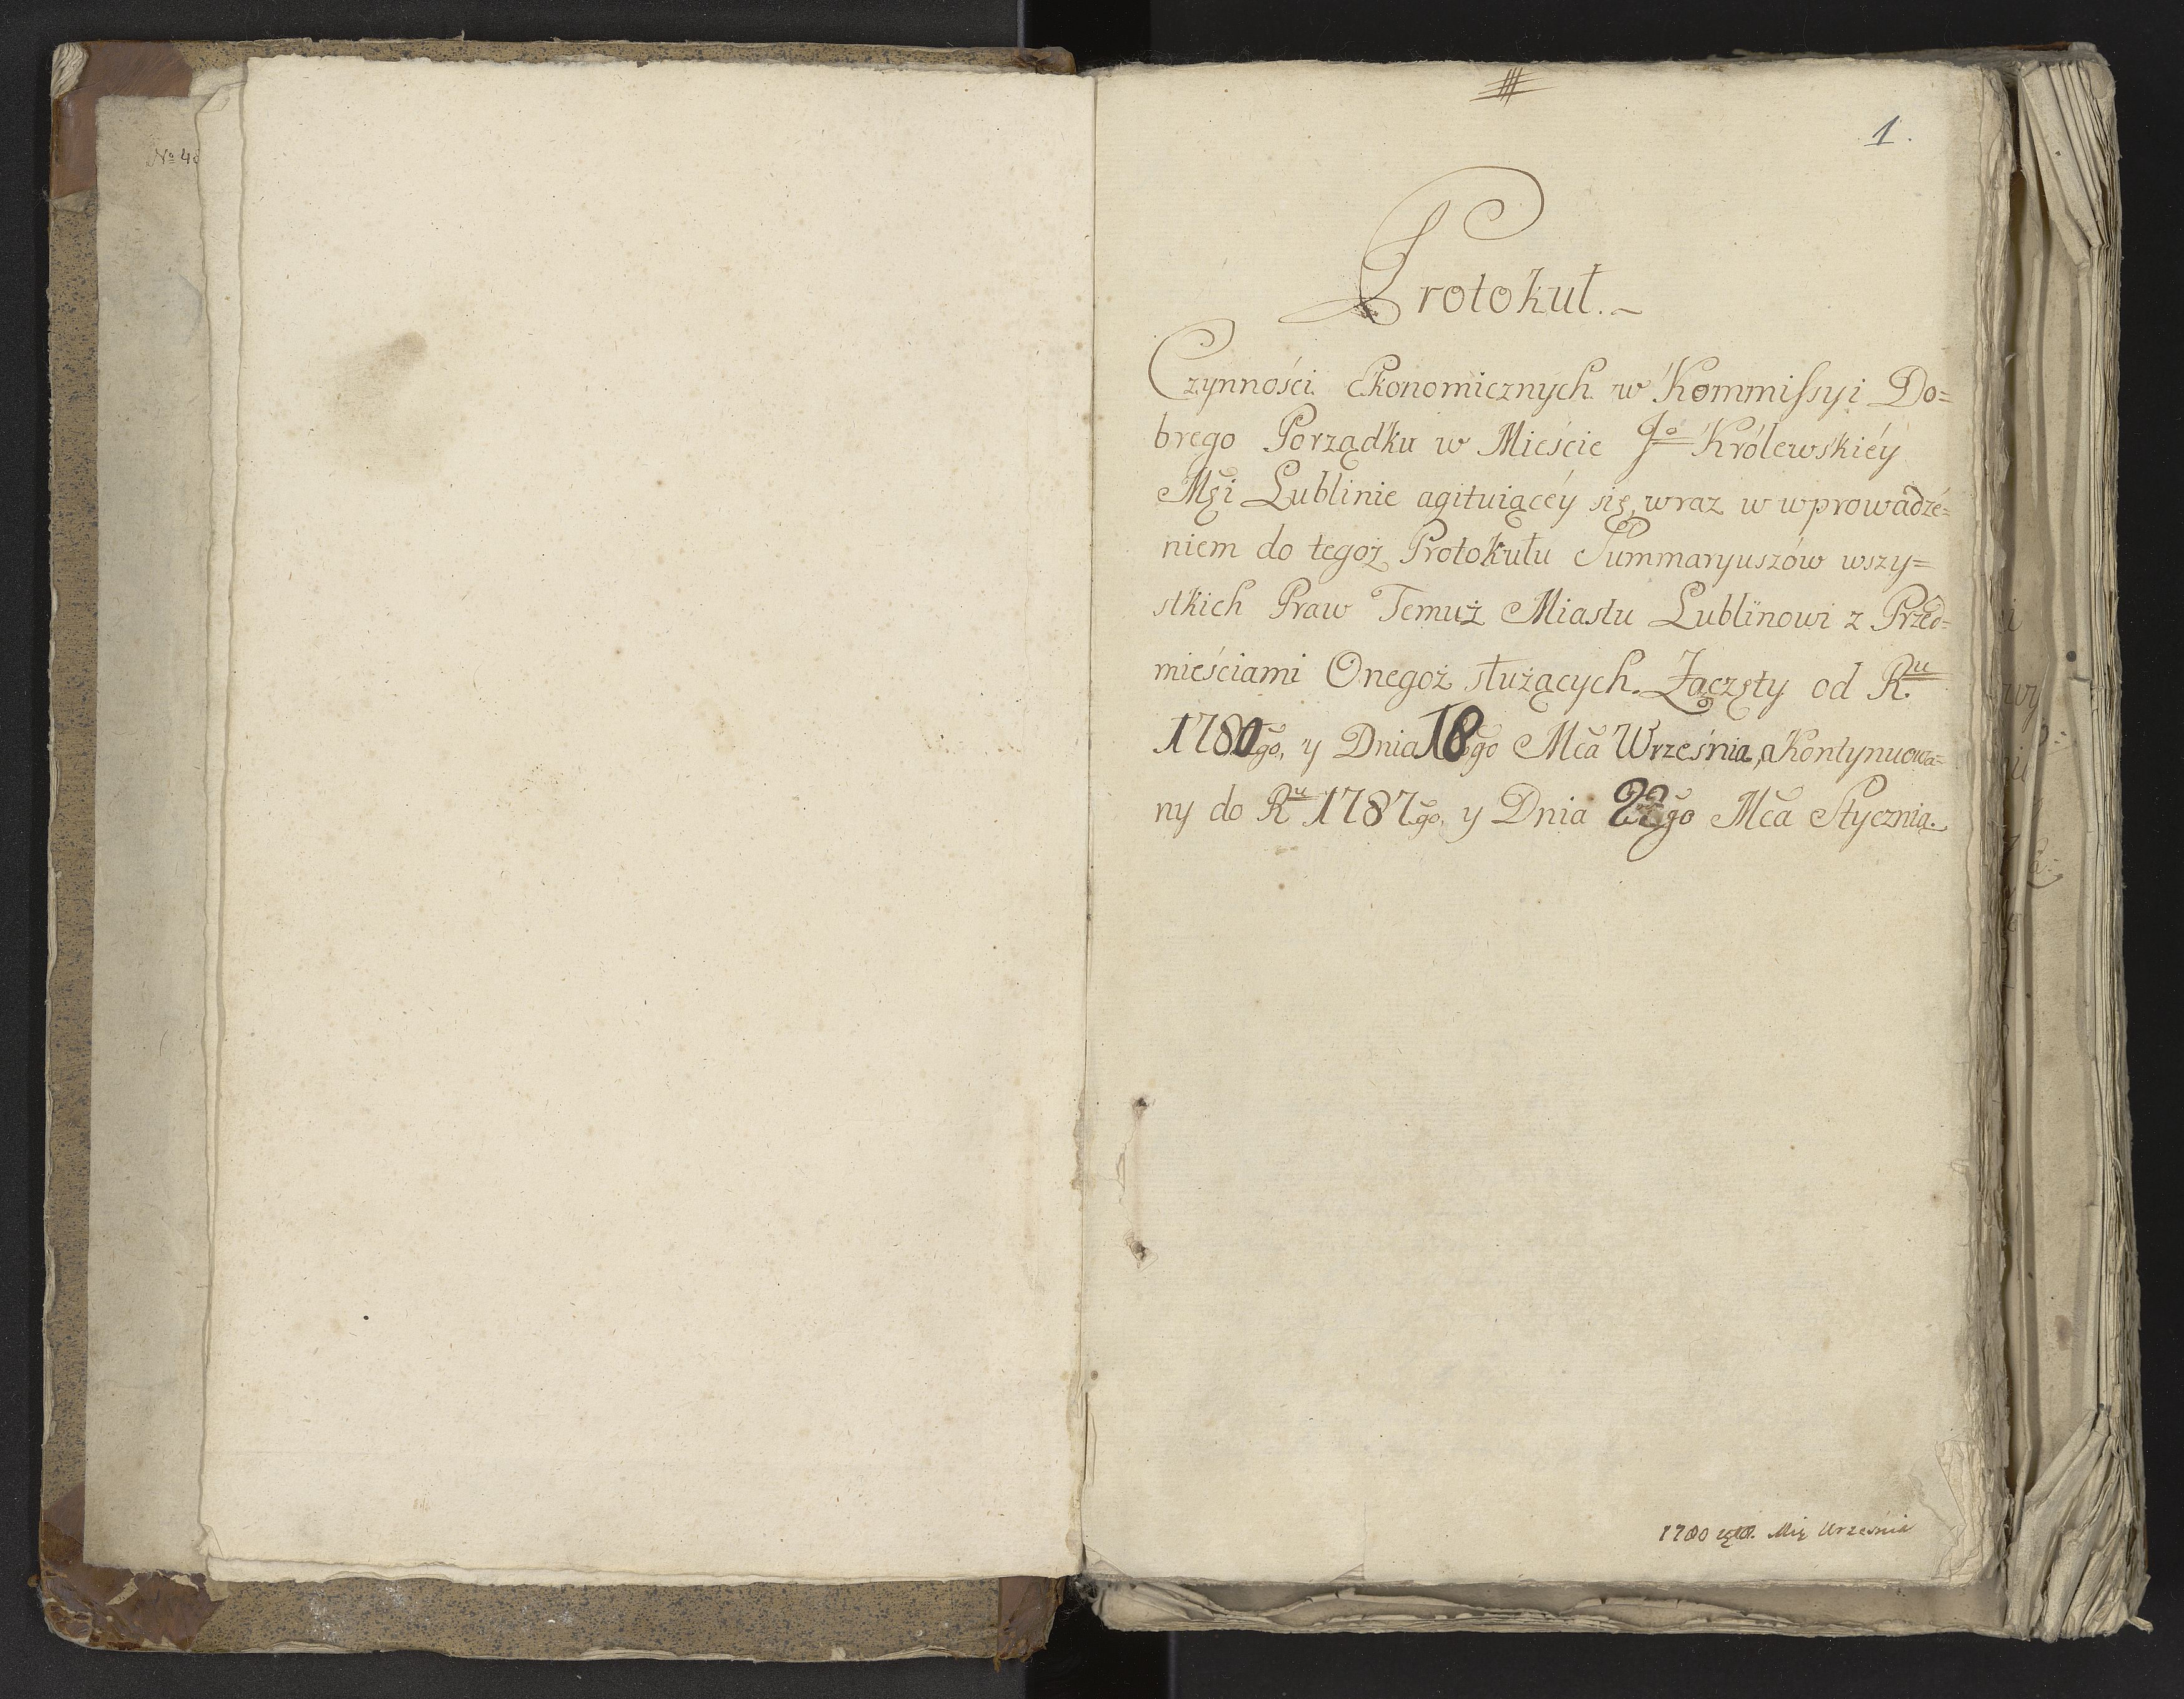 № 4
1.
Protokuł.~
Czynności Ekonomicznych w Kommissyi Do=
brego Porządku w Mieście Jo Królewskiéy
Mści Lublinie agituiącéy się, wraz w wprowadze=
niem do tegoż Protokułu Summaryuszów wszy=
stkich Praw Temuż Miastu Lublinowi z Przed=
mieściami Onegoż służących. Zaczęty od Ru
1780go, y Dnia 18go Mca Września, a Kontynuowa=
ny do Ru 1787go, y Dnia 22go Mca Stycznia.
1780 Września